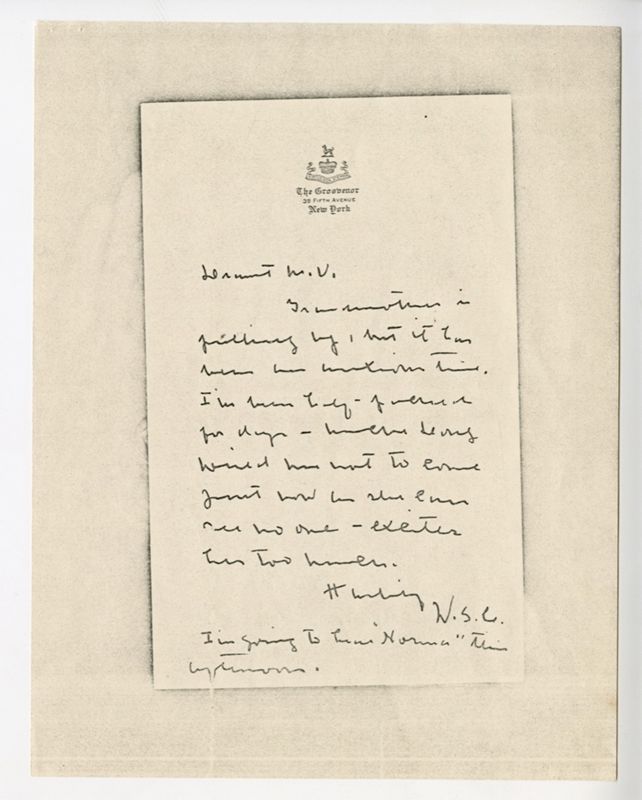 The Grosvenor
35 FIFTH AVENUE
New York
Dearest M.V.
Grandmother is
pulling up, but it has
been an anxious time.
I've been half-packed
for days – mother
wired me not to come
just now as she can
see no one – excites
her too much.
Hastily
W.S.C.
I'm going to hear "Norma" this
afternoon.